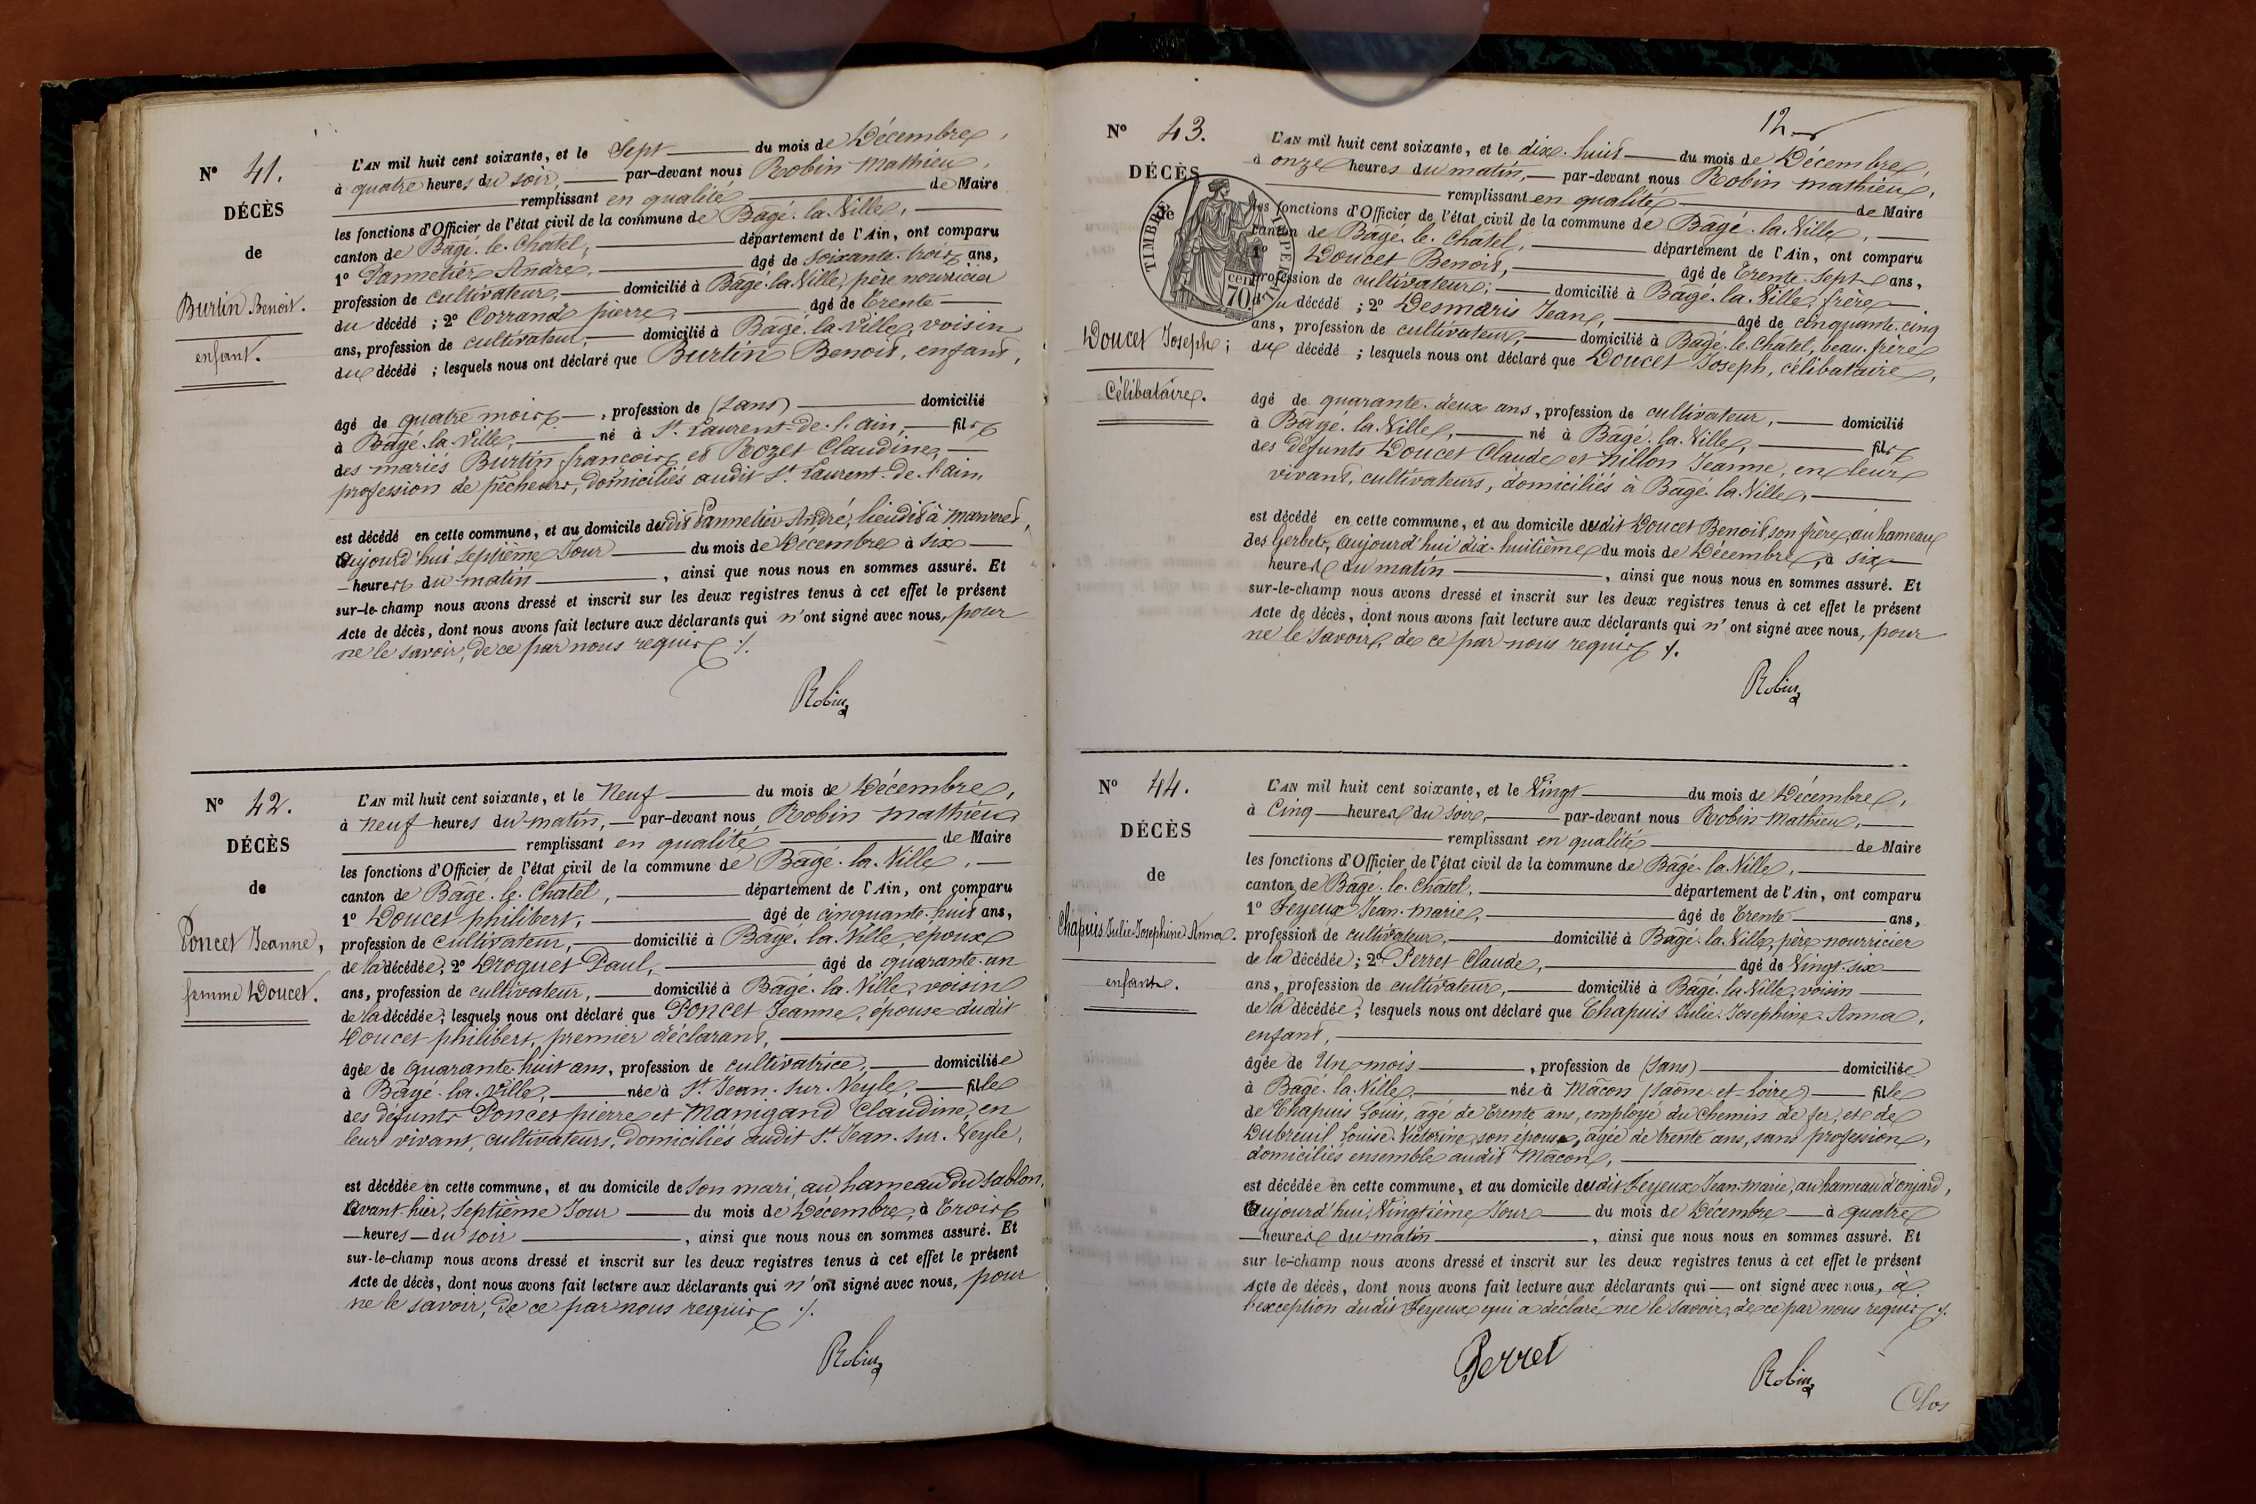 N° 41.
DÉCÈS
de
Burtin Benoit.
enfant.
L'AN mil huit cent soixante, et le Sept du mois de Décembre,
à quatre heures du soir, par-devant nous Robin Mathieu,
remplissant en qualité de Maire
les fonctions d'Officier de l'état civil de la commune de Bâgé-la-Ville,
canton de Bâgé-le-Chatel, département de l'Ain, ont comparu
1° Pannetier André, âgé de soixante-trois ans,
profession de cultivateur, domicilié à Bâgé-la-Ville, père nourricier
du décédé ; 2° Corrand pierre, âgé de trente
ans, profession de cultivateur, domicilié à Bâgé-la-Ville, voisin
du décédé ; lesquels nous ont déclaré que Burtin Benoit, enfant,
âgé de quatre mois, profession de (sans) domicilié
à Bâgé-la-Ville, né à St Laurent-de-l'ain, fils
des mariés Burtin françois et Rozet Claudine,
profession de pêcheurs, domiciliés audit St Laurent-de-l'ain,
est décédé en cette commune, et au domicile dudit Pannetier André, lieudit à
Aujourd'hui Septième Jour du mois de Décembre à six
heures du matin, ainsi que nous nous en sommes assuré. Et
sur-le-champ nous avons dressé et inscrit sur les deux registres tenus à cet effet le présent
Acte de décès, dont nous avons fait lecture aux déclarants qui n'ont signé avec nous, pour
ne le savoir, de ce par nous requis ./.
Robin
N° 42.
DÉCÈS
de
Poncet Jeanne,
femme Doucet.
L'AN mil huit cent soixante, et le Neuf du mois de Décembre,
à Neuf heures du matin, par-devant nous Robin Mathieu
remplissant en qualité de Maire
les fonctions d'Officier de l'état civil de la commune de Bâgé-la-Ville,
canton de Bâgé-le-Chatel, département de l'Ain, ont comparu
1° Doucet philibert, âgé de cinquante-huit ans,
profession de cultivateur, domicilié à Bâgé-la-Ville, époux
de la décédée; 2° Droguet Paul, âgé de quarante-un
ans, profession de cultivateur, domicilié à Bâgé-la-Ville, voisin
de la décédée; lesquels nous ont déclaré que Poncet Jeanne, épouse dudit
Doucet philibert, premier déclarant,
âgée de quarante-huit ans, profession de cultivatrice, domiciliée
à Bâgé-la-Ville, née à St Jean-sur-Veyle, fille
des défunts Poncet pierre et Manigand Claudine, en
leur vivant, cultivateurs, domiciliés audit St Jean-sur-Veyle,
est décédée en cette commune, et au domicile de son mari, au hameau du Sablon,
Avant hier, Septième Jour du mois de Décembre, à trois
heures du soir, ainsi que nous nous en sommes assuré. Et
sur-le-champ nous avons dressé et inscrit sur les deux registres tenus à cet effet le présent
Acte de décès, dont nous avons fait lecture aux déclarants qui n'ont signé avec nous, pour
ne le savoir, de ce par nous requis ./.
Robin
12
N° 43.
DÉCÈS
de
TIMBRE IMPERIAL
70 cent
Doucet Joseph;
Célibataire.
L'AN mil huit cent soixante, et le dix-huit du mois de Décembre,
à onze heures du matin, par-devant nous Robin Mathieu,
remplissant en qualité de Maire
les fonctions d'Officier de l'état civil de la commune de Bâgé-la-Ville,
canton de Bâgé-le-Châtel, département de l'Ain, ont comparu
1° Doucet Benoit, âgé de trente-sept ans,
profession de cultivateur, domicilié à Bâgé-la-Ville, frère
du décédé ; 2° Desmaris Jean, âgé de cinquante-cinq
ans, profession de cultivateur, domicilié à Bâgé-le-Chatel, beau-frère
du décédé ; lesquels nous ont déclaré que Doucet Joseph, célibataire,
âgé de quarante-deux ans, profession de cultivateur, domicilié
à Bâgé-la-Ville, né à Bâgé-la-Ville, fils
des défunts Doucet Claude et Nillon Jeanne, en leur
vivant, cultivateurs, domiciliés à Bâgé-la-Ville,
est décédé en cette commune, et au domicile dudit Doucet Benoit, son frère, au hameau
des Gerbets, Aujourd'hui dix-huitième du mois de Décembre, à six
heures du matin, ainsi que nous nous en sommes assuré. Et
sur-le-champ nous avons dressé et inscrit sur les deux registres tenus à cet effet le présent
Acte de décès, dont nous avons fait lecture aux déclarants qui n'ont signé avec nous, pour
ne le savoir, de ce par nous requis ./.
Robin
N° 44.
DÉCÈS
de
Chapuis Julie-Josephine-Anna.
enfant.
L'AN mil huit cent soixante, et le Vingt du mois de Décembre,
à Cinq heures du soir, par-devant nous Robin Mathieu,
remplissant en qualité de Maire
les fonctions d'Officier de l'état civil de la commune de Bâgé-la-Ville,
canton de Bâgé-le-Châtel, département de l'Ain, ont comparu
1° Feyeux Jean-marie, âgé de trente ans,
profession de cultivateur, domicilié à Bâgé-la-Ville, père nourricier
de la décédée; 2° Perret Claude, âgé de Vingt-six
ans, profession de cultivateur, domicilié à Bâgé-la-Ville, voisin
de la décédée; lesquels nous ont déclaré que Chapuis Julie-Josephine-Anna,
enfant,
âgée de Un mois, profession de (sans) domiciliée
à Bâgé-la-Ville, née à Mâcon (Saône-et-Loire) fille
de Chapuis Louis, âgé de trente ans, employé du chemin de fer, et de
Dubreuil Louise-Victorine, son épouse, âgée de trente ans, sans profession,
domiciliés ensemble audit Mâcon,
est décédée en cette commune, et au domicile dudit Feyeux Jean-marie, au hameau d'onjard,
Aujourd'hui, Vingtième Jour du mois de Décembre à quatre
heures du matin, ainsi que nous nous en sommes assuré. Et
sur le-champ nous avons dressé et inscrit sur les deux registres tenus à cet effet le présent
Acte de décès, dont nous avons fait lecture aux déclarants qui ont signé avec nous, à
l'exception dudit Feyeux qui a déclaré ne le savoir, de ce par nous requis ./.
Perret
Robin
Clos